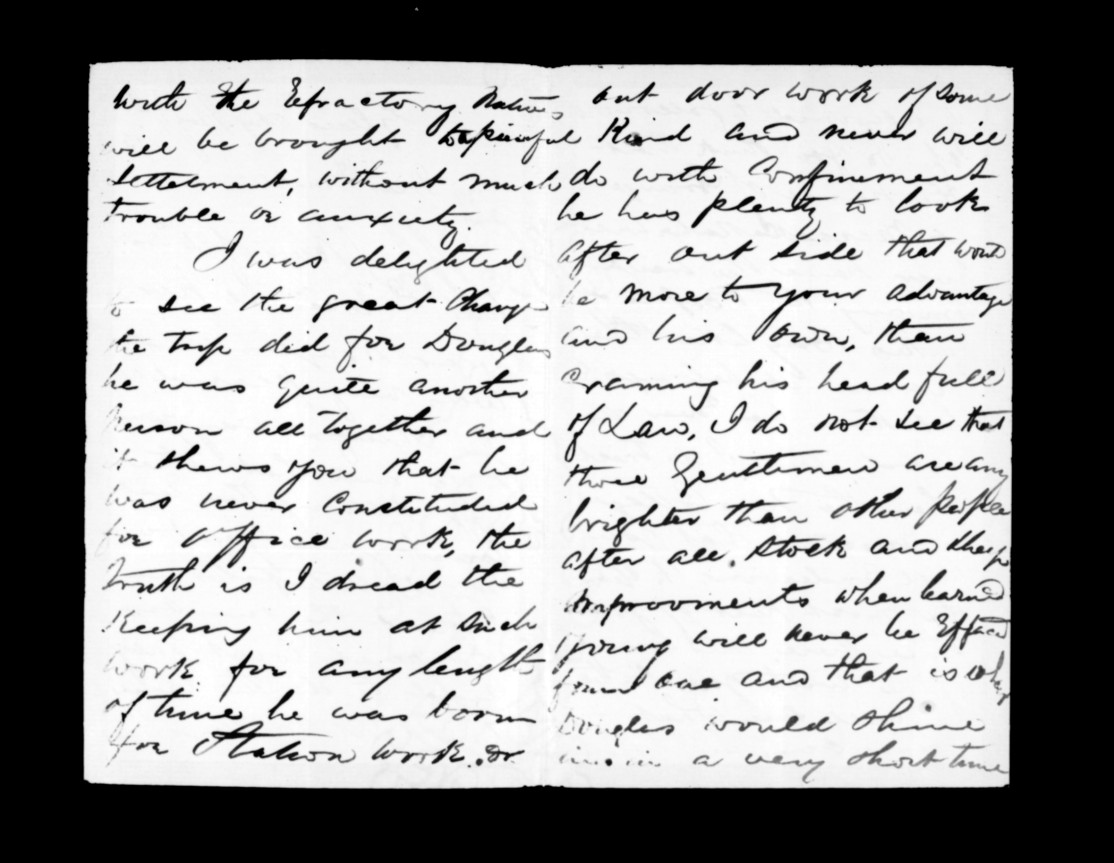 with the Efractory Natives
will be brought to painful
settelment, without much
trouble or anxiety.
I was delighted
to see the great Change
the trip did for Douglas
he was quite another
person all together and
it shews you that he
was never Constituded
for Office work, the
truth is I dread the
Keeping him at Such
work for any length
of time he was born
for Station work. or
out door work of Some
Kind and never will
do with Confinement
he has plenty to look
after out side that would
be more to your advantage
and his own, than
Craming his head full
of Law, I do not see that
those Gentlemen are any
brighter than other people
after all. Stock and Sheep
improovments when learned
young will never be Effaced
from one and that is why
Douglas would Shine
in a very short time